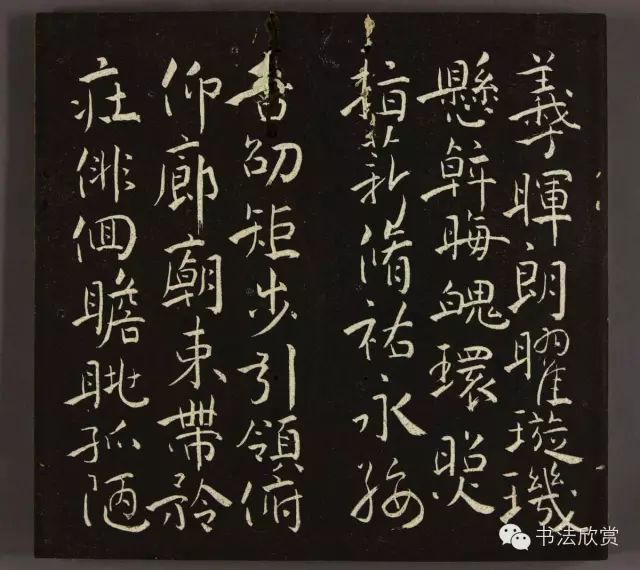 羲暉朗曜璇璣
懸斡晦魄環照
指薪脩祐永綏
吉劭矩步引領俯
仰廊廟束帶矜
莊俳佪瞻眺孤陋
书法欣赏